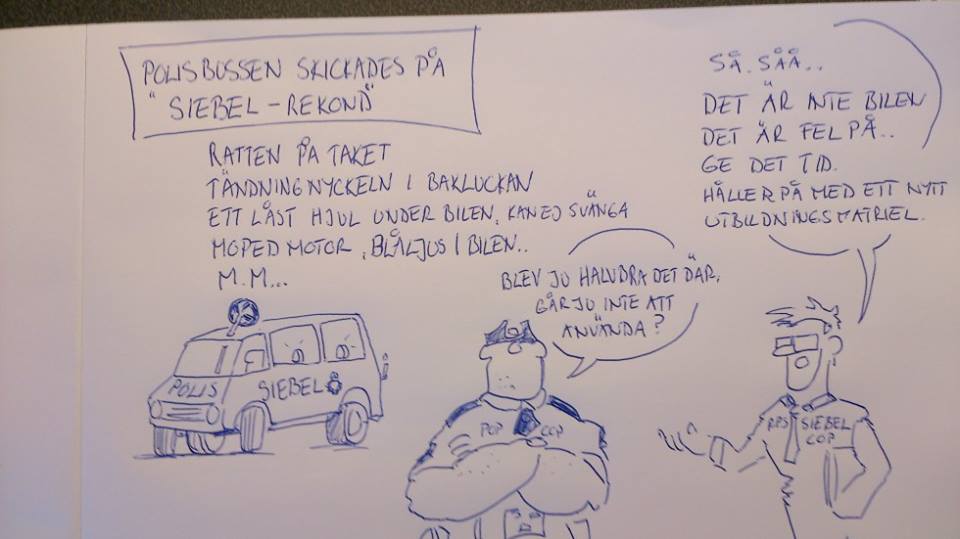 POLISBUSSEN SKICKADES PÅ
"SIEBEL-REKOND"
RATTEN PÅ TAKET
TÄNDNINGNYCKELN I BAKLUCKAN
ETT LÅST HJUL UNDER BILEN, KAN EJ SVÄNGA
MOPED MOTOR, BLÅLJUS I BILEN..
M.M...
POLIS
SIEBEL
BLEV JU HALVBRA DET DÄR,
GÅR JU INTE ATT
ANVÄNDA?
POP COP
SÅ, SÅÅ..
DET ÄR INTE BILEN
DET ÄR FEL PÅ..
GE DET TID.
HÅLLER PÅ MED ETT NYTT
UTBILDNINGSMATRIEL.
RPS SIEBEL
COP